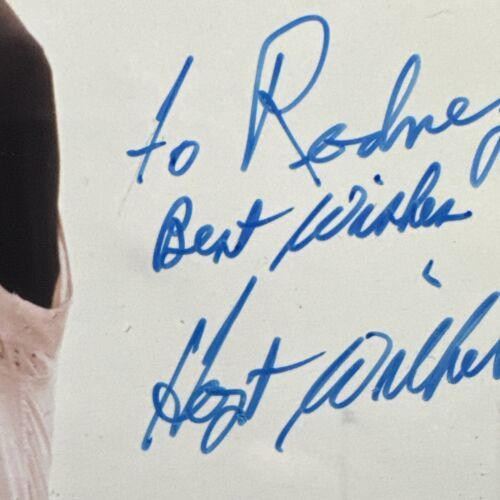 to Rodney
Best Wishes
Hoyt Wilhel